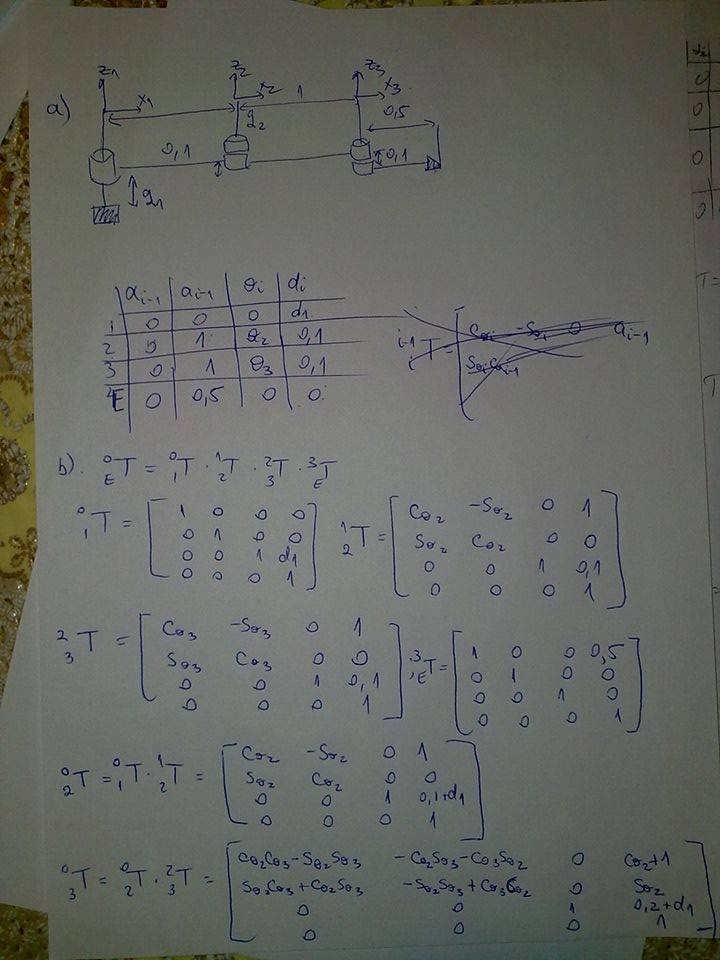 a)
z₁ z₂ z₃
x₁ x₂ 1 x₃
q₂ 0,5
0,1 0,1
q₁
αᵢ₋₁ aᵢ₋₁ θᵢ dᵢ
1 0 0 0 d₁
2 0 1 θ₂ 0,1
3 0 1 θ₃ 0,1
E 0 0,5 0 0
b). ⁰ET = ⁰₁T · ¹₂T · ²₃T · ³ET
⁰₁T =
1 0 0 0
0 1 0 0
0 0 1 d₁
0 0 0 1
¹₂T =
Cθ₂ -Sθ₂ 0 1
Sθ₂ Cθ₂ 0 0
0 0 1 0,1
0 0 0 1
²₃T =
Cθ₃ -Sθ₃ 0 1
Sθ₃ Cθ₃ 0 0
0 0 1 0,1
0 0 0 1
³ET =
1 0 0 0,5
0 1 0 0
0 0 1 0
0 0 0 1
⁰₂T = ⁰₁T · ¹₂T =
Cθ₂ -Sθ₂ 0 1
Sθ₂ Cθ₂ 0 0
0 0 1 0,1+d₁
0 0 0 1
⁰₃T = ⁰₂T · ²₃T =
Cθ₂Cθ₃-Sθ₂Sθ₃ -Cθ₂Sθ₃-Cθ₃Sθ₂ 0 Cθ₂+1
Sθ₂Cθ₃+Cθ₂Sθ₃ -Sθ₂Sθ₃+Cθ₃Cθ₂ 0 Sθ₂
0 0 1 0,2+d₁
0 0 0 1